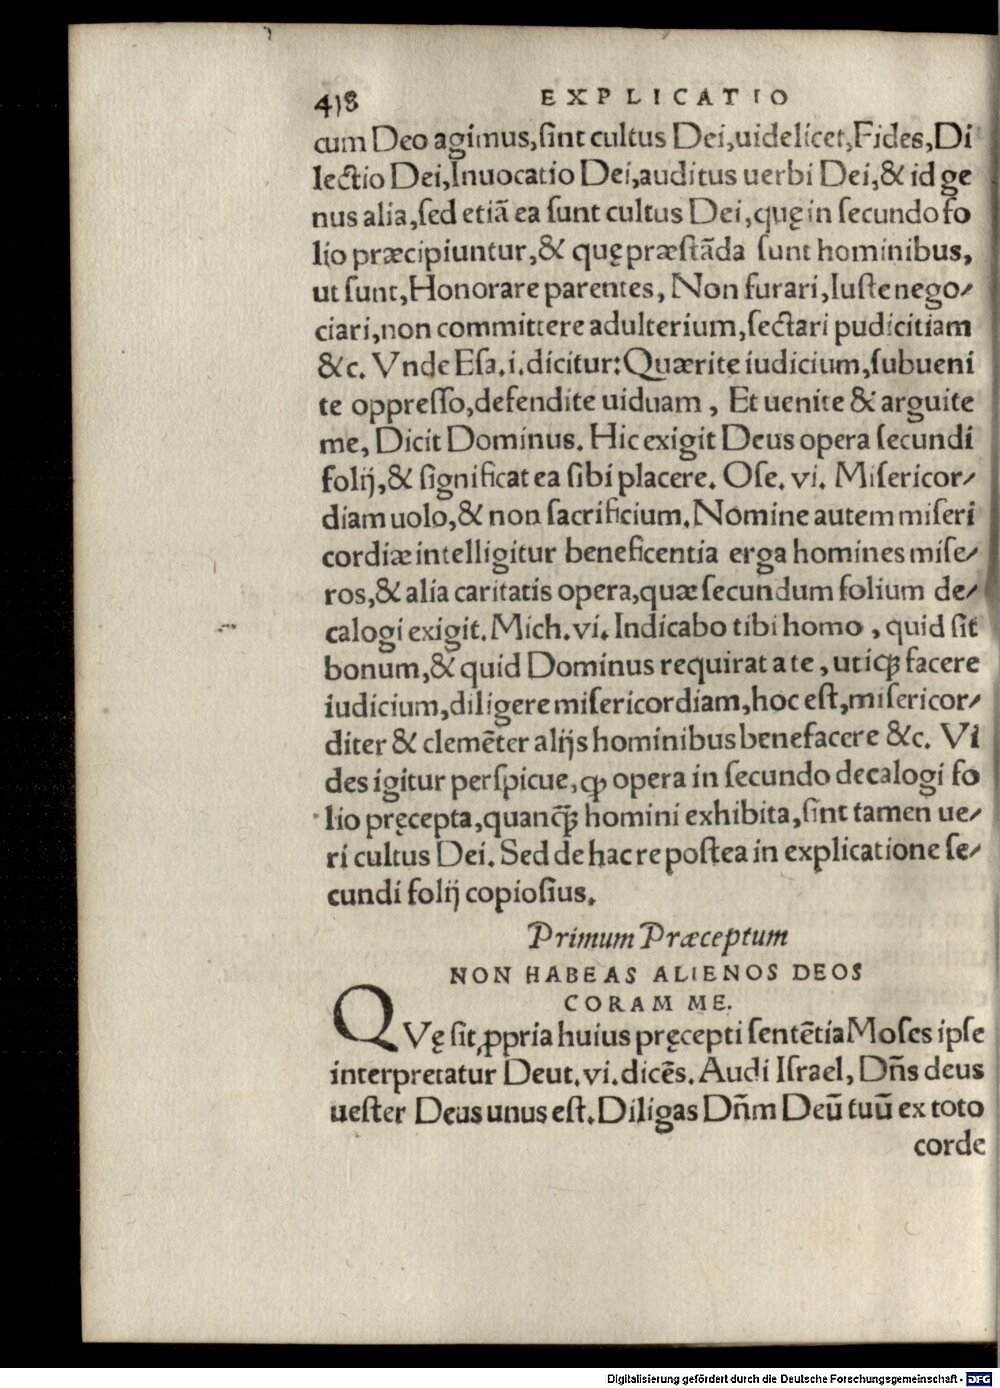 418 EXPLICATIO
cum Deo agimus,ſint cultus Dei,uidelicet,Fides,Di
lectio Dei,Inuocatio Dei,auditus uerbi Dei,& id ge
nus alia,ſed etiā ea ſunt cultus Dei,quę in ſecundo fo
lio præcipiuntur,& quę præſtāda ſunt hominibus,
ut ſunt,Honorare parentes, Non furari,Iuſte nego/
ciari,non committere adulterium,ſectari pudicitiam
&c. Vnde Eſa.i.dicitur:Quærite iudicium,ſubueni
te oppreſſo,defendite uiduam, Et uenite & arguite
me, Dicit Dominus. Hic exigit Deus opera ſecundi
folij,& ſignificat ea ſibi placere. Oſe. vi. Miſericor/
diam uolo,& non ſacrificium. Nomine autem miſeri
cordiæ intelligitur beneficentia erga homines miſe/
ros,& alia caritatis opera,quæ ſecundum folium de/
calogi exigit. Mich.vi. Indicabo tibi homo, quid ſit
bonum,& quid Dominus requirat a te, utiqꝫ facere
iudicium,diligere miſericordiam,hoc eſt,miſericor/
diter & clemēter alijs hominibus benefacere &c. Vi
des igitur perſpicue,ꝙ opera in ſecundo decalogi fo
lio pręcepta,quanq̄ꝫ homini exhibita,ſint tamen ue/
ri cultus Dei. Sed de hac re poſtea in explicatione ſe/
cundi folij copioſius.
Primum Præceptum
NON HABEAS ALIENOS DEOS
CORAM ME.
QVę ſit ꝓpria huius pręcepti ſentētia Moſes ipſe
interpretatur Deut.vi.dicēs. Audi Iſrael, Dn̄s deus
ueſter Deus unus eſt. Diligas Dn̄m Deū tuū ex toto
corde
Digitalisierung gefördert durch die Deutsche Forschungsgemeinschaft - DFG